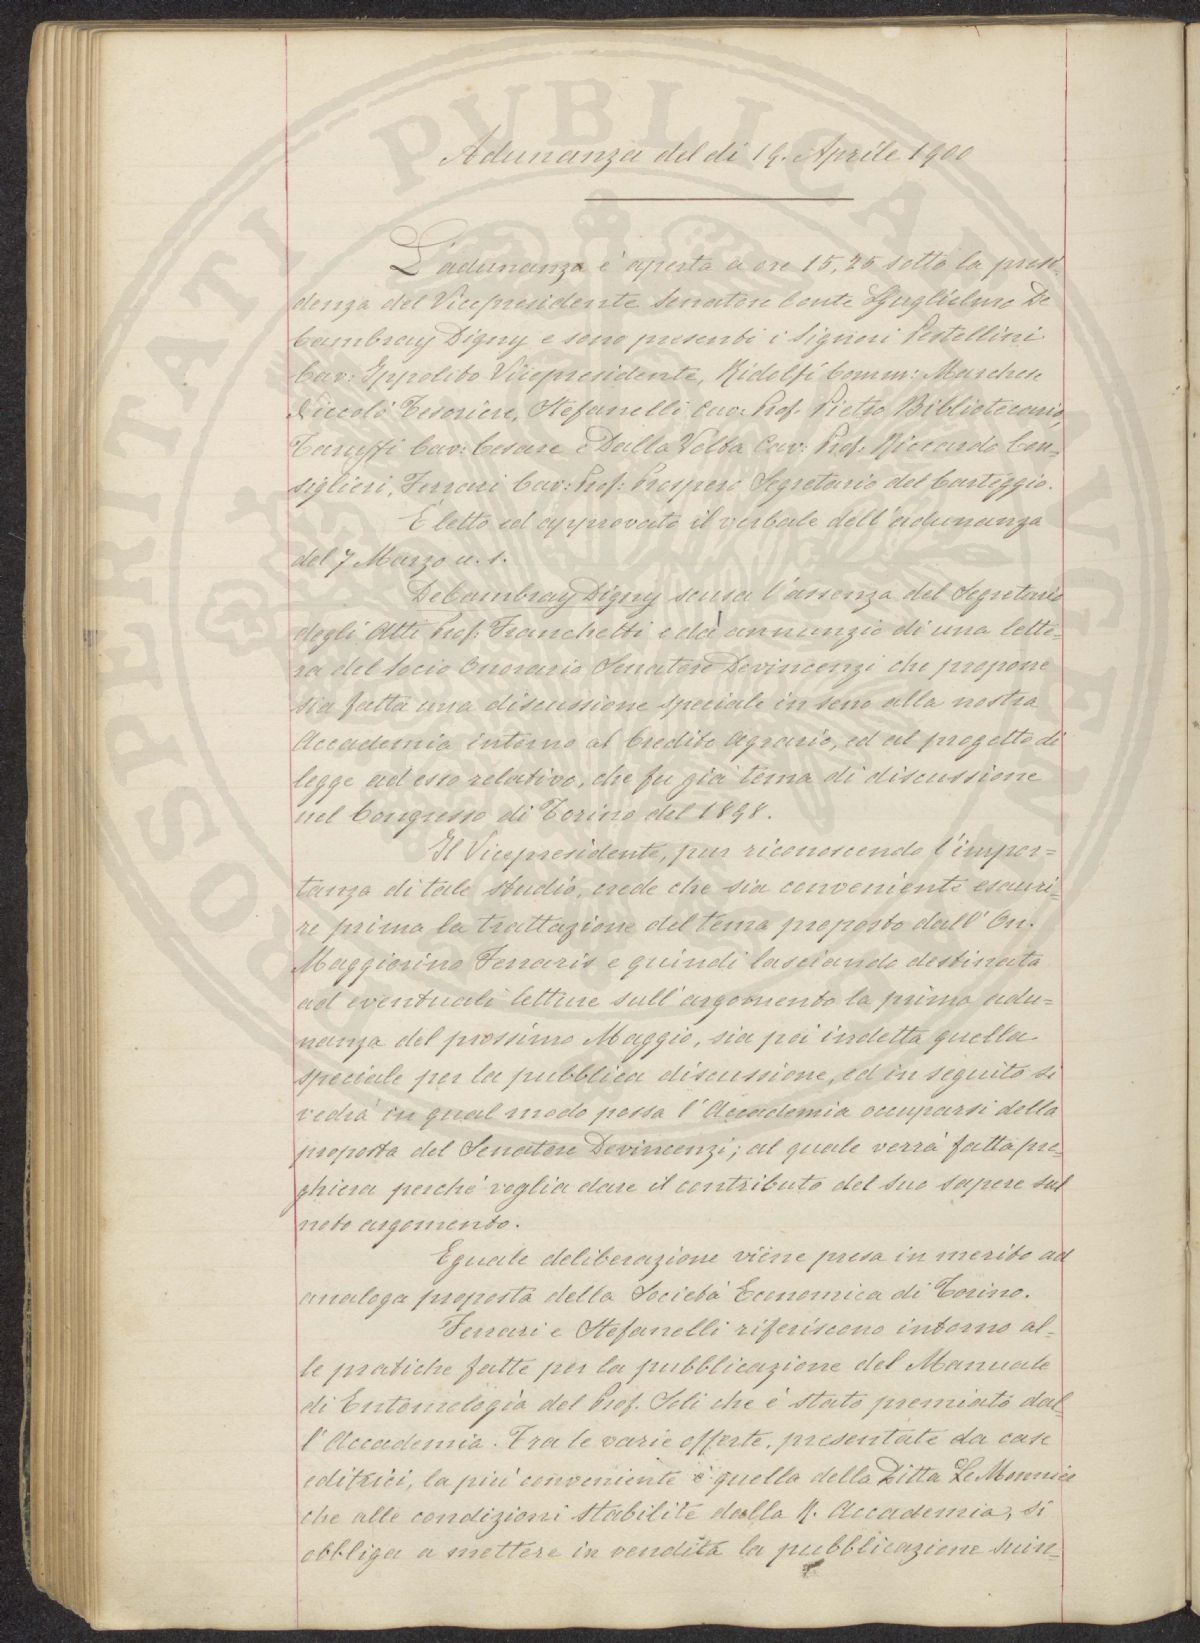 Adunanza del dì 19. Aprile 1900
L'adunanza è aperta a ore 15,25 sotto la presi-
denza del Vicepresidente Senatore Conte Guglielmo De
Cambray Digny e sono presenti i Signori Pestellini
Cav: Ippolito Vicepresidente, Ridolfi Comm: Marchese
Niccolò Tesoriere, Stefanelli Cav: Prof. Pietro Bibliotecario,
Taruffi Cav: Cesare e Dalla Volta Cav: Prof: Riccardo Con-
siglieri, Ferrari Cav: Prof: Prospero Segretario del Carteggio.
È letto ed approvato il verbale dell'adunanza
del 7 Marzo u. s.
DeCambray Digny scusa l'assenza del Segretario
degli Atti Prof: Franchetti e dà annunzio di una lette-
ra del Socio Onorario Senatore Devincenzi che propone
sia fatta una discussione speciale in seno alla nostra
Accademia intorno al Credito Agrario, ed al progetto di
legge ad esso relativo, che fu già tema di discussione
nel Congresso di Torino del 1898.
Il Vicepresidente, pur riconoscendo l'impor=
tanza di tale studio, crede che sia conveniente esauri-
re prima la trattazione del tema proposto dall'On.
Maggiorino Ferraris e quindi lasciando destinata
ad eventuali letture sull'argomento la prima adu=
nanza del prossimo Maggio, sia poi indetta quella
speciale per la pubblica discussione, ed in seguito si
vedrà in qual modo possa l'Accademia occuparsi della
proposta del Senatore Devincenzi; al quale verrà fatta pre-
ghiera perché voglia dare il contributo del suo sapere sul
noto argomento.
Eguale deliberazione viene presa in merito ad
analoga proposta della Società Economica di Torino.
Ferrari e Stefanelli riferiscono intorno al-
le pratiche fatte per la pubblicazione del Manuale
di Entomologia del Prof. Soli che è stato premiato dal-
l'Accademia. Tra le varie offerte, presentate da case
editrici, la più conveniente è quella della Ditta Le Monnier
che alle condizioni stabilite dalla R. Accademia, si
obbliga a mettere in vendita la pubblicazione suin-
PROSPERITATI PUBLICAE AUGENDAE